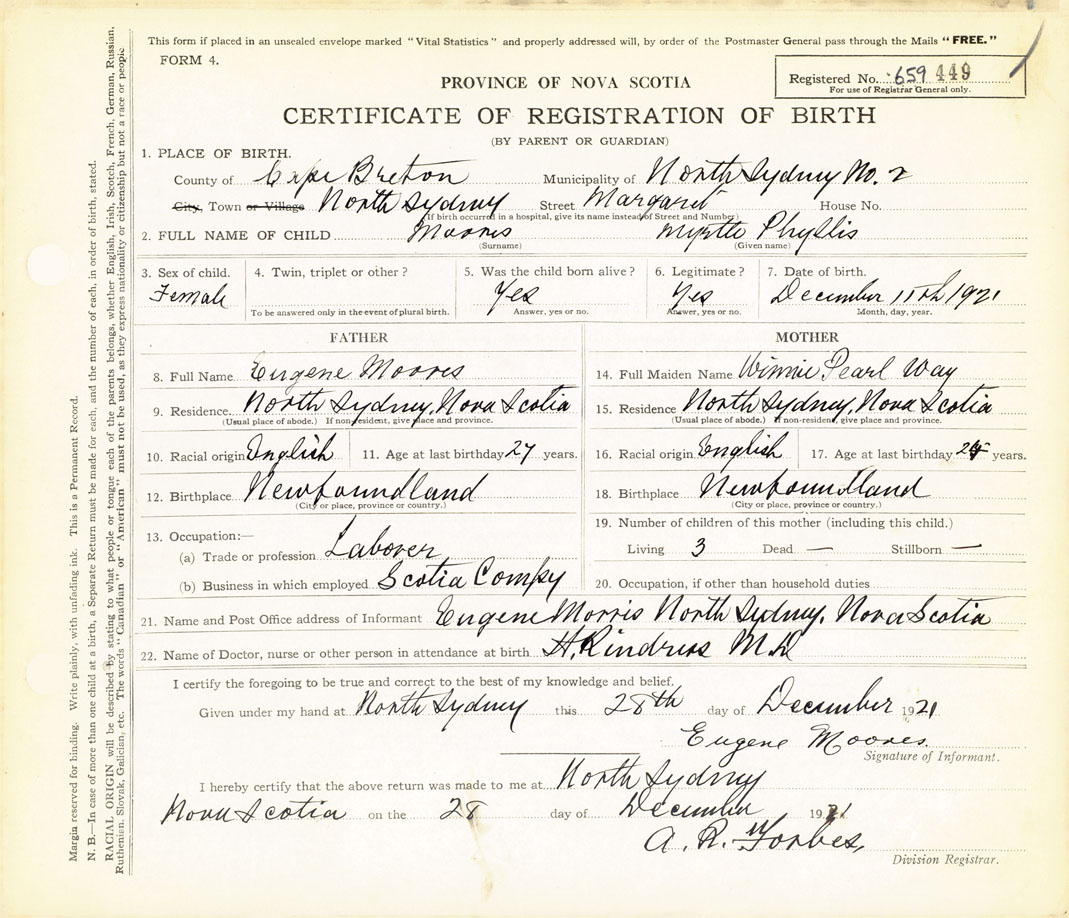 This form if placed in an unsealed envelope marked "Vital Statistics" and properly addressed will, by order of the Postmaster General pass through the Mails "FREE."
FORM 4.
Registered No. 659 449
For use of Registrar General only.
PROVINCE OF NOVA SCOTIA
CERTIFICATE OF REGISTRATION OF BIRTH
(BY PARENT OR GUARDIAN)
1. PLACE OF BIRTH.
County of Cape Breton Municipality of North Sydney No. 2
City, Town or Village North Sydney Street Margaret House No.
(If birth occurred in a hospital, give its name instead of Street and Number)
2. FULL NAME OF CHILD Moores Myrtle Phyllis
(Surname) (Given name)
3. Sex of child. 4. Twin, triplet or other? 5. Was the child born alive? 6. Legitimate? 7. Date of birth.
Female Yes Yes December 11th 1921
To be answered only in the event of plural birth. Answer, yes or no. Answer, yes or no. Month, day, year.
FATHER MOTHER
8. Full Name Eugene Moores 14. Full Maiden Name Winnie Pearl Way
9. Residence North Sydney, Nova Scotia 15. Residence North Sydney, Nova Scotia
(Usual place of abode.) If non-resident, give place and province. (Usual place of abode.) If non-resident, give place and province.
10. Racial origin English 11. Age at last birthday 27 years. 16. Racial origin English 17. Age at last birthday years.
12. Birthplace Newfoundland 18. Birthplace Newfoundland
(City or place, province or country.) (City or place, province or country.)
13. Occupation:— 19. Number of children of this mother (including this child.)
(a) Trade or profession Laborer Living 3 Dead — Stillborn —
(b) Business in which employed Scotia Compy 20. Occupation, if other than household duties
21. Name and Post Office address of Informant Eugene Morris North Sydney, Nova Scotia
22. Name of Doctor, nurse or other person in attendance at birth H. M.D
I certify the foregoing to be true and correct to the best of my knowledge and belief.
Given under my hand at North Sydney this 28th day of December 1921
Eugene Moores.
Signature of Informant.
I hereby certify that the above return was made to me at North Sydney
Nova Scotia on the 28 day of December 1921
A. R. Forbes,
Division Registrar.
Margin reserved for binding. Write plainly, with unfading ink. This is a Permanent Record.
N. B.—In case of more than one child at a birth, a Separate Return must be made for each, and the number of each, in order of birth, stated.
RACIAL ORIGIN will be described by stating to what people or tongue each of the parents belongs, whether English, Irish, Scotch, French, German, Russian,
Ruthenian, Slovak, Galician, etc. The words "Canadian" or "American" must not be used, as they express nationality or citizenship but not a race or people